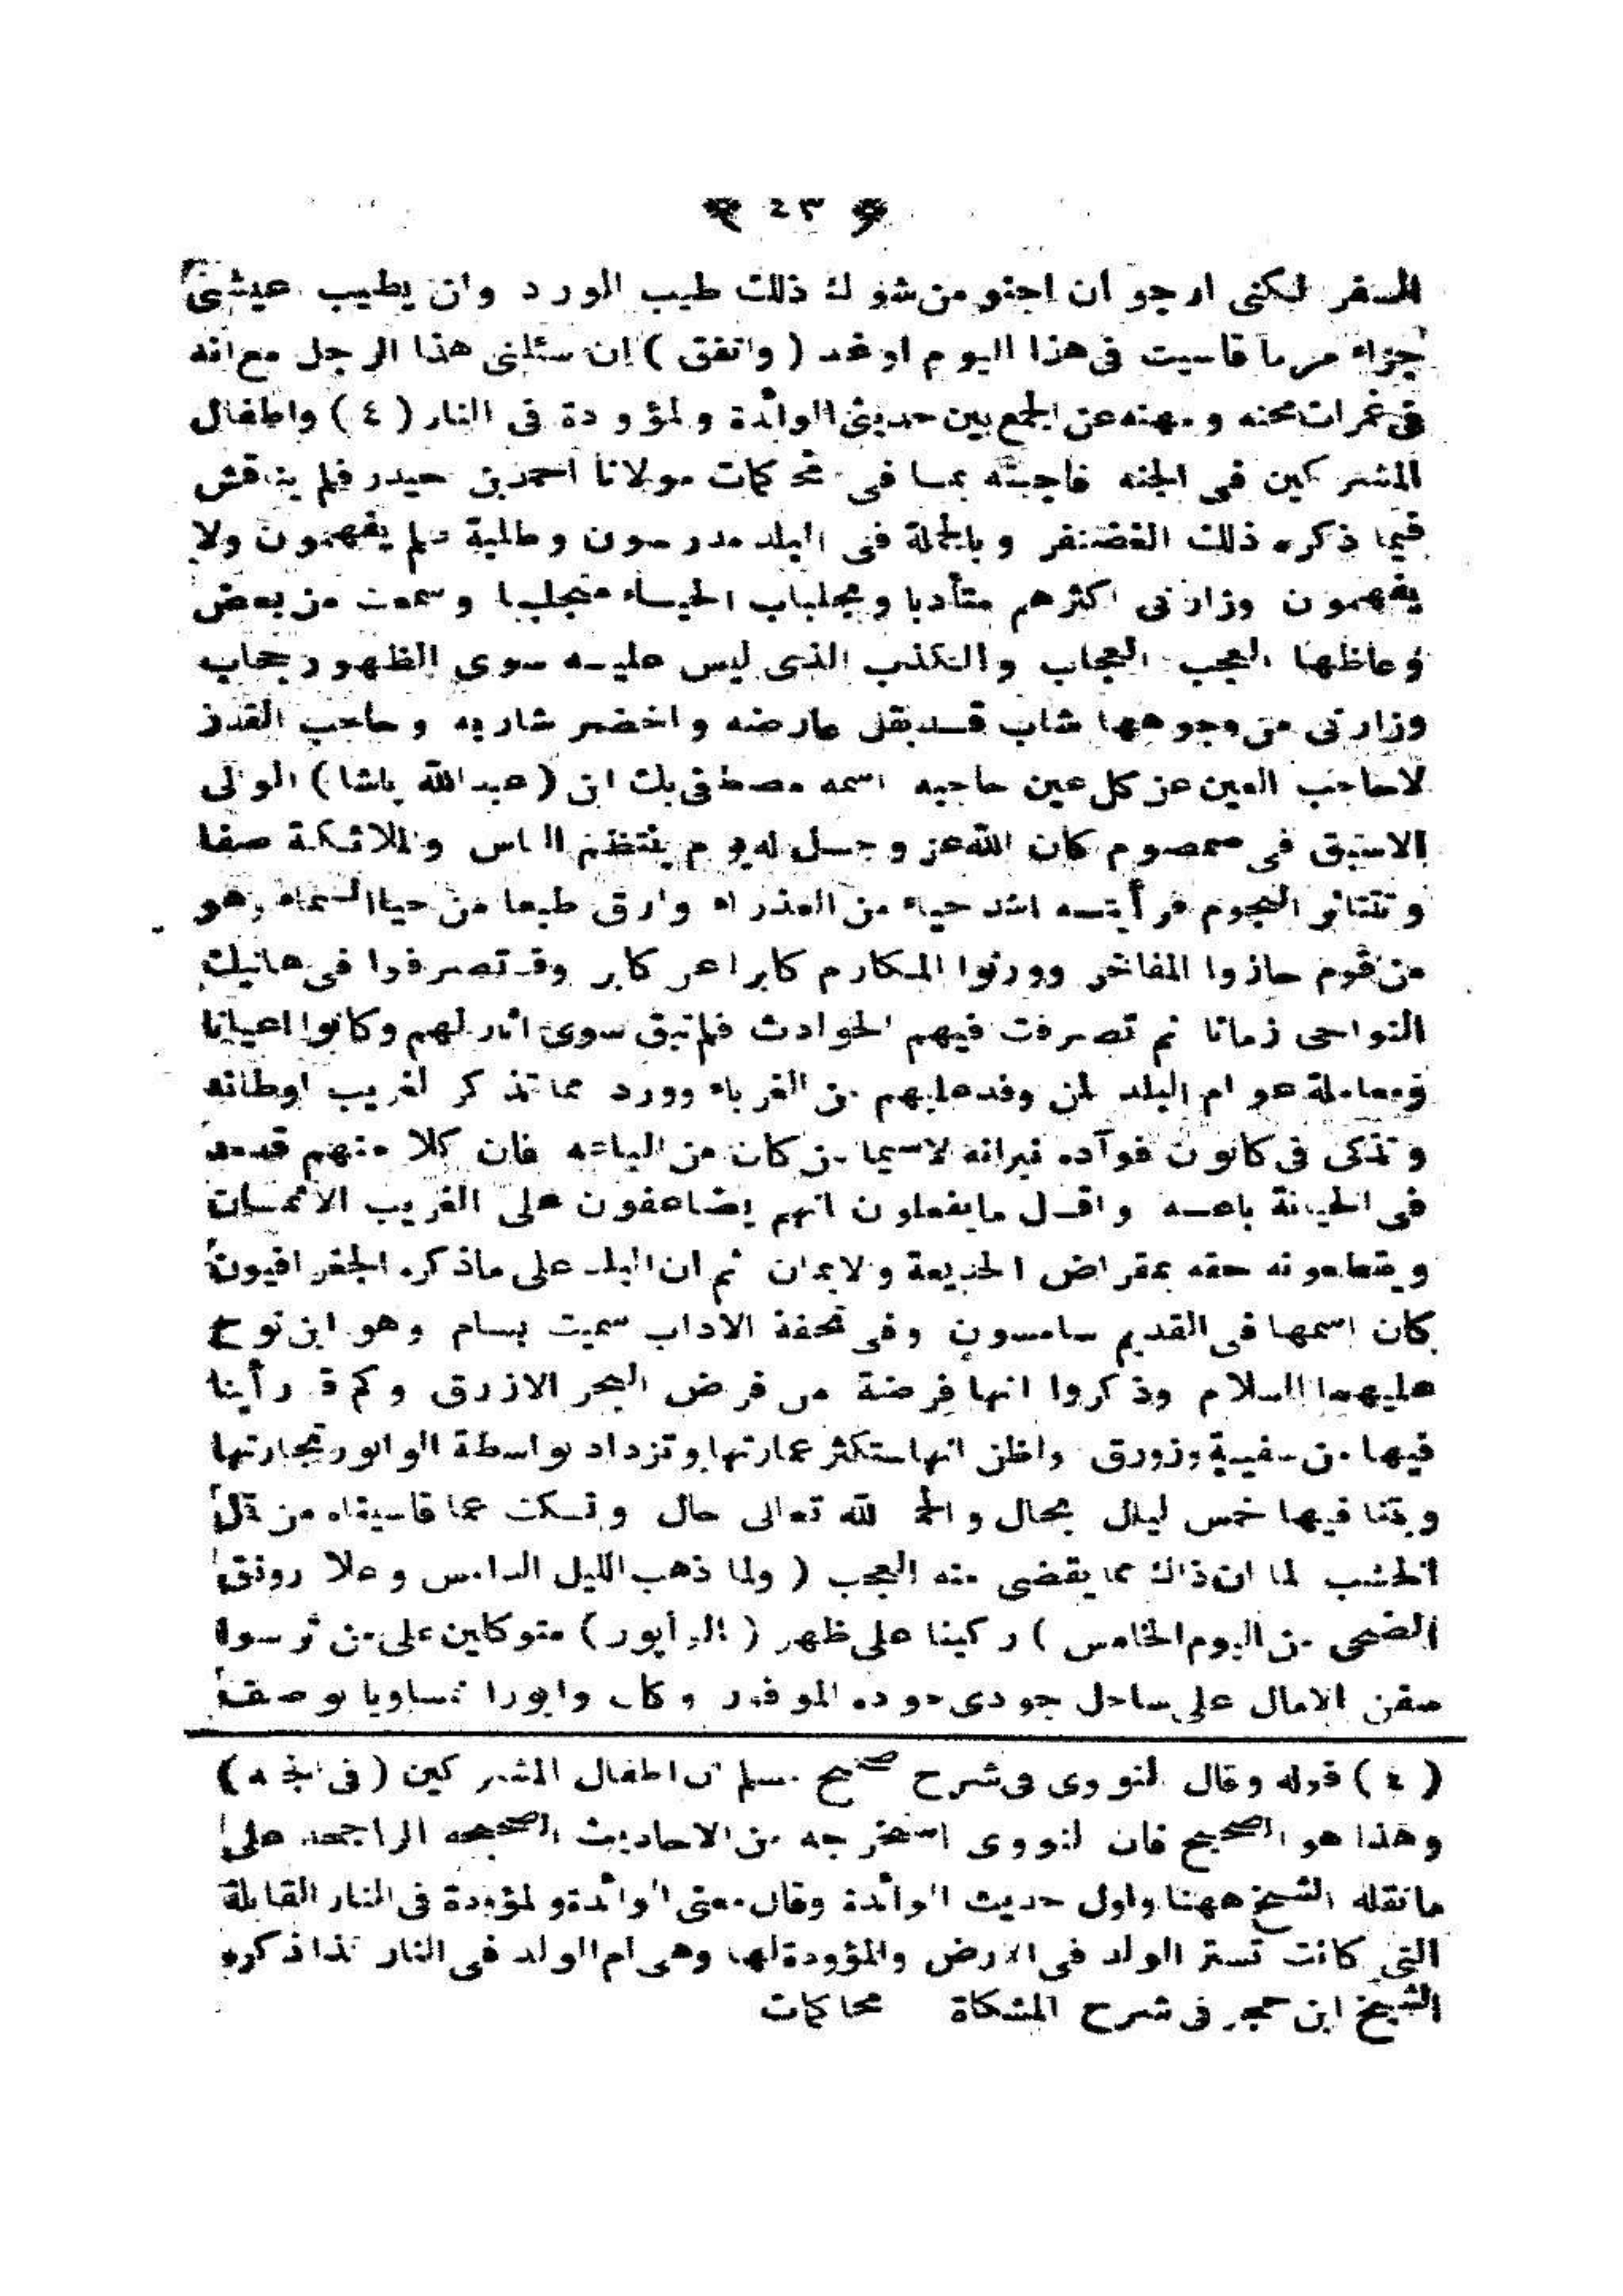 ﴿ ٤٣ ﴾
السفر لكنى ارجو ان اجتنى من شوك ذلك طيب الورد وان يطيب عيشى
جزاء مر ما قاسيت فى هذا اليوم او غد ( واتفق ) ان سئلنى هذا الرجل مع انه
فى غمرات محنه و مهنه عن الجمع بين حديثى الوائدة والمؤودة فى النار ( ٤ ) واطفال
المشركين فى الجنه فاجبته بما فى محاكمات مولانا احمد بن حيدر فلم يناقش
فيما ذكره ذلك الغضنفر وبالجملة فى البلد مدرسون وطلبة لم يفهمون ولا
يفهمون وزارنى اكثرهم متأدبا وبجلباب الحياء متجلببا وسمعت من بعض
وعاظها العجب العجاب والكذب الذى ليس عليه سوى الظهور حجاب
وزارنى من وجوهها شاب قد بقل عارضه واخضر شاربه وحاجب القدر
لا حاجب العين عن كل عين حاجبه اسمه مصطفى بك ابن ( عبد الله باشا ) الوالى
الاسبق فى صمصوم كان الله عز وجل له يوم ينتظم الناس والملائكة صفا
وتتناثر النجوم فرأيته اشد حياء من العذراء وارق طبعا من حيا السماء وهو
من قوم حازوا المفاخر وورثوا المكارم كابرا عن كابر وقد تصرفوا فى هاتيك
النواحى زمانا ثم تصرفت فيهم الحوادث فلم تبق سوى اثار لهم وكانوا اعيانا
ومعاملة عوام البلد لمن وفد عليهم من الغرباء وورد مما تذكر الغريب اوطانه
وتذكى فى كانون فؤآده نيرانه لاسيما من كان من الباعه فان كلا منهم قد مد
فى الخيانة باعه واقل ما يفعلون انهم يضاعفون على الغريب الاثمان
ويقطعونه حقه بمقراض الخديعة والايمان ثم ان البلد على ماذكره الجغرافيون
كان اسمها فى القديم سامسون وفى تحفة الاداب سميت بسام وهو ابن نوح
عليهما السلام وذكروا انها فرضة من فرض البحر الازرق وكم قد رأينا
فيها من سفينة وزورق واظن انها ستكثر عمارتها وتزداد بواسطة الوابور تجارتها
وبتنا فيها خمس ليال بحال والحمد لله تعالى حال ونسكت عما قاسيناه من
الخشب لما ان ذاك مما يقضى منه العجب ( ولما ذهب الليل الدامس وعلا رونق
الضحى من اليوم الخامس ) ركبنا على ظهر ( الوابور ) متوكلين على من ترسوا
سفن الامال على ساحل جودى جوده الموفور وكان وابورا نمساويا بوصف
( ٤ ) قوله وقال النووى فى شرح صحيح مسلم ان اطفال المشركين ( فى الجنه )
وهذا هو الصحيح فان النووى استخرجه من الاحاديث الصحيحه الراجحه على
ما نقله الشيخ ههنا واول حديث الوائدة وقال معنى الوائدة والمؤودة فى النار القابلة
التى كانت تستر الولد فى الارض والمؤودة لها وهى ام الولد فى النار كذا ذكره
الشيخ ابن حجر فى شرح المشكاة محاكمات